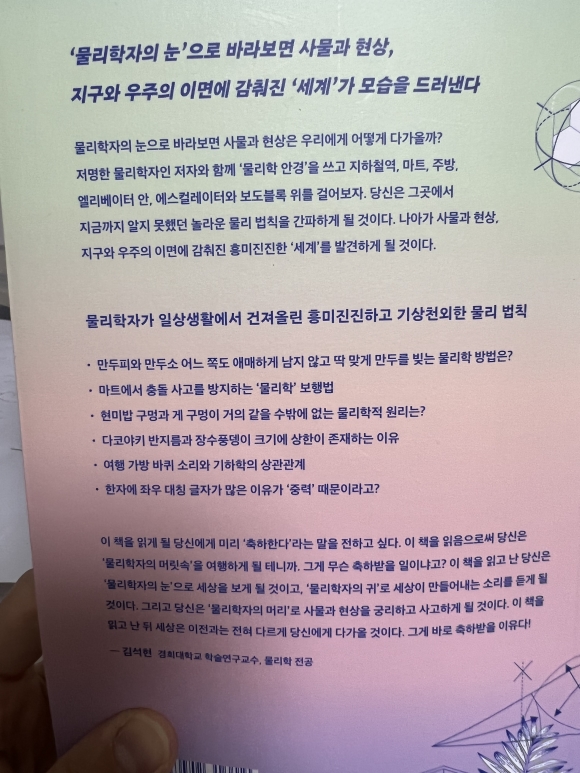 ‘물리학자의 눈’으로 바라보면 사물과 현상,
지구와 우주의 이면에 감춰진 ‘세계’가 모습을 드러낸다
물리학자의 눈으로 바라보면 사물과 현상은 우리에게 어떻게 다가올까?
저명한 물리학자인 저자와 함께 ‘물리학 안경’을 쓰고 지하철역, 마트, 주방,
엘리베이터 안, 에스컬레이터와 보도블록 위를 걸어보자. 당신은 그곳에서
지금까지 알지 못했던 놀라운 물리 법칙을 간파하게 될 것이다. 나아가 사물과 현상,
지구와 우주의 이면에 감춰진 흥미진진한 ‘세계’를 발견하게 될 것이다.
물리학자가 일상생활에서 건져올린 흥미진진하고 기상천외한 물리 법칙
· 만두피와 만두소 어느 쪽도 애매하게 남지 않고 딱 맞게 만두를 빚는 물리학 방법은?
· 마트에서 충돌 사고를 방지하는 ‘물리학’ 보행법
· 현미밥 구멍과 게 구멍이 거의 같을 수밖에 없는 물리학적 원리는?
· 다코야키 반지름과 장수풍뎅이 크기에 상한이 존재하는 이유
· 여행 가방 바퀴 소리와 기하학의 상관관계
· 한자에 좌우 대칭 글자가 많은 이유가 ‘중력’ 때문이라고?
이 책을 읽게 될 당신에게 미리 ‘축하한다’라는 말을 전하고 싶다. 이 책을 읽음으로써 당신은
‘물리학자의 머릿속’을 여행하게 될 테니까. 그게 무슨 축하받을 일이냐고? 이 책을 읽고 난 당신은
‘물리학자의 눈’으로 세상을 보게 될 것이고, ‘물리학자의 귀’로 세상이 만들어내는 소리를 듣게 될
것이다. 그리고 당신은 ‘물리학자의 머리’로 사물과 현상을 궁리하고 사고하게 될 것이다. 이 책을
읽고 난 뒤 세상은 이전과는 전혀 다르게 당신에게 다가올 것이다. 그게 바로 축하받을 이유다!
― 김석현 경희대학교 학술연구교수, 물리학 전공